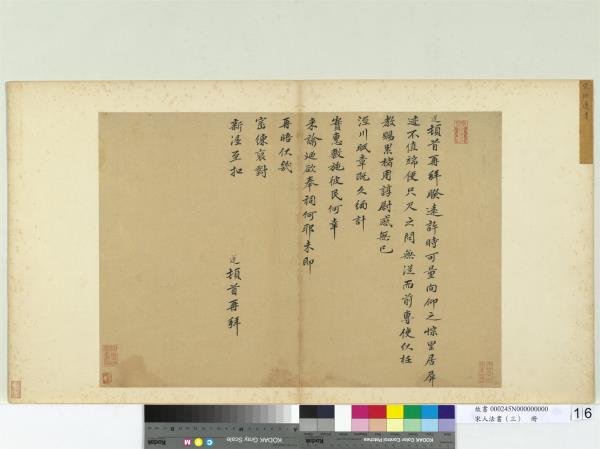 頓首再拜暌遠許時可量向仰之悰里居屏
迹不值端便只尺之問無從而前專使伏枉
教賜累楮用諄尉感無已
涇川貳章既久緬計
實惠敷施彼民何幸
來諭迺欲奉祠何耶未即
再晤伏幾
密僚裒對
新渥至扣
頓首再拜
故書 000245N000000000
宋人法書（三） 冊
16
KODAK Gray Scale
KODAK Color Control Patches
Kodak